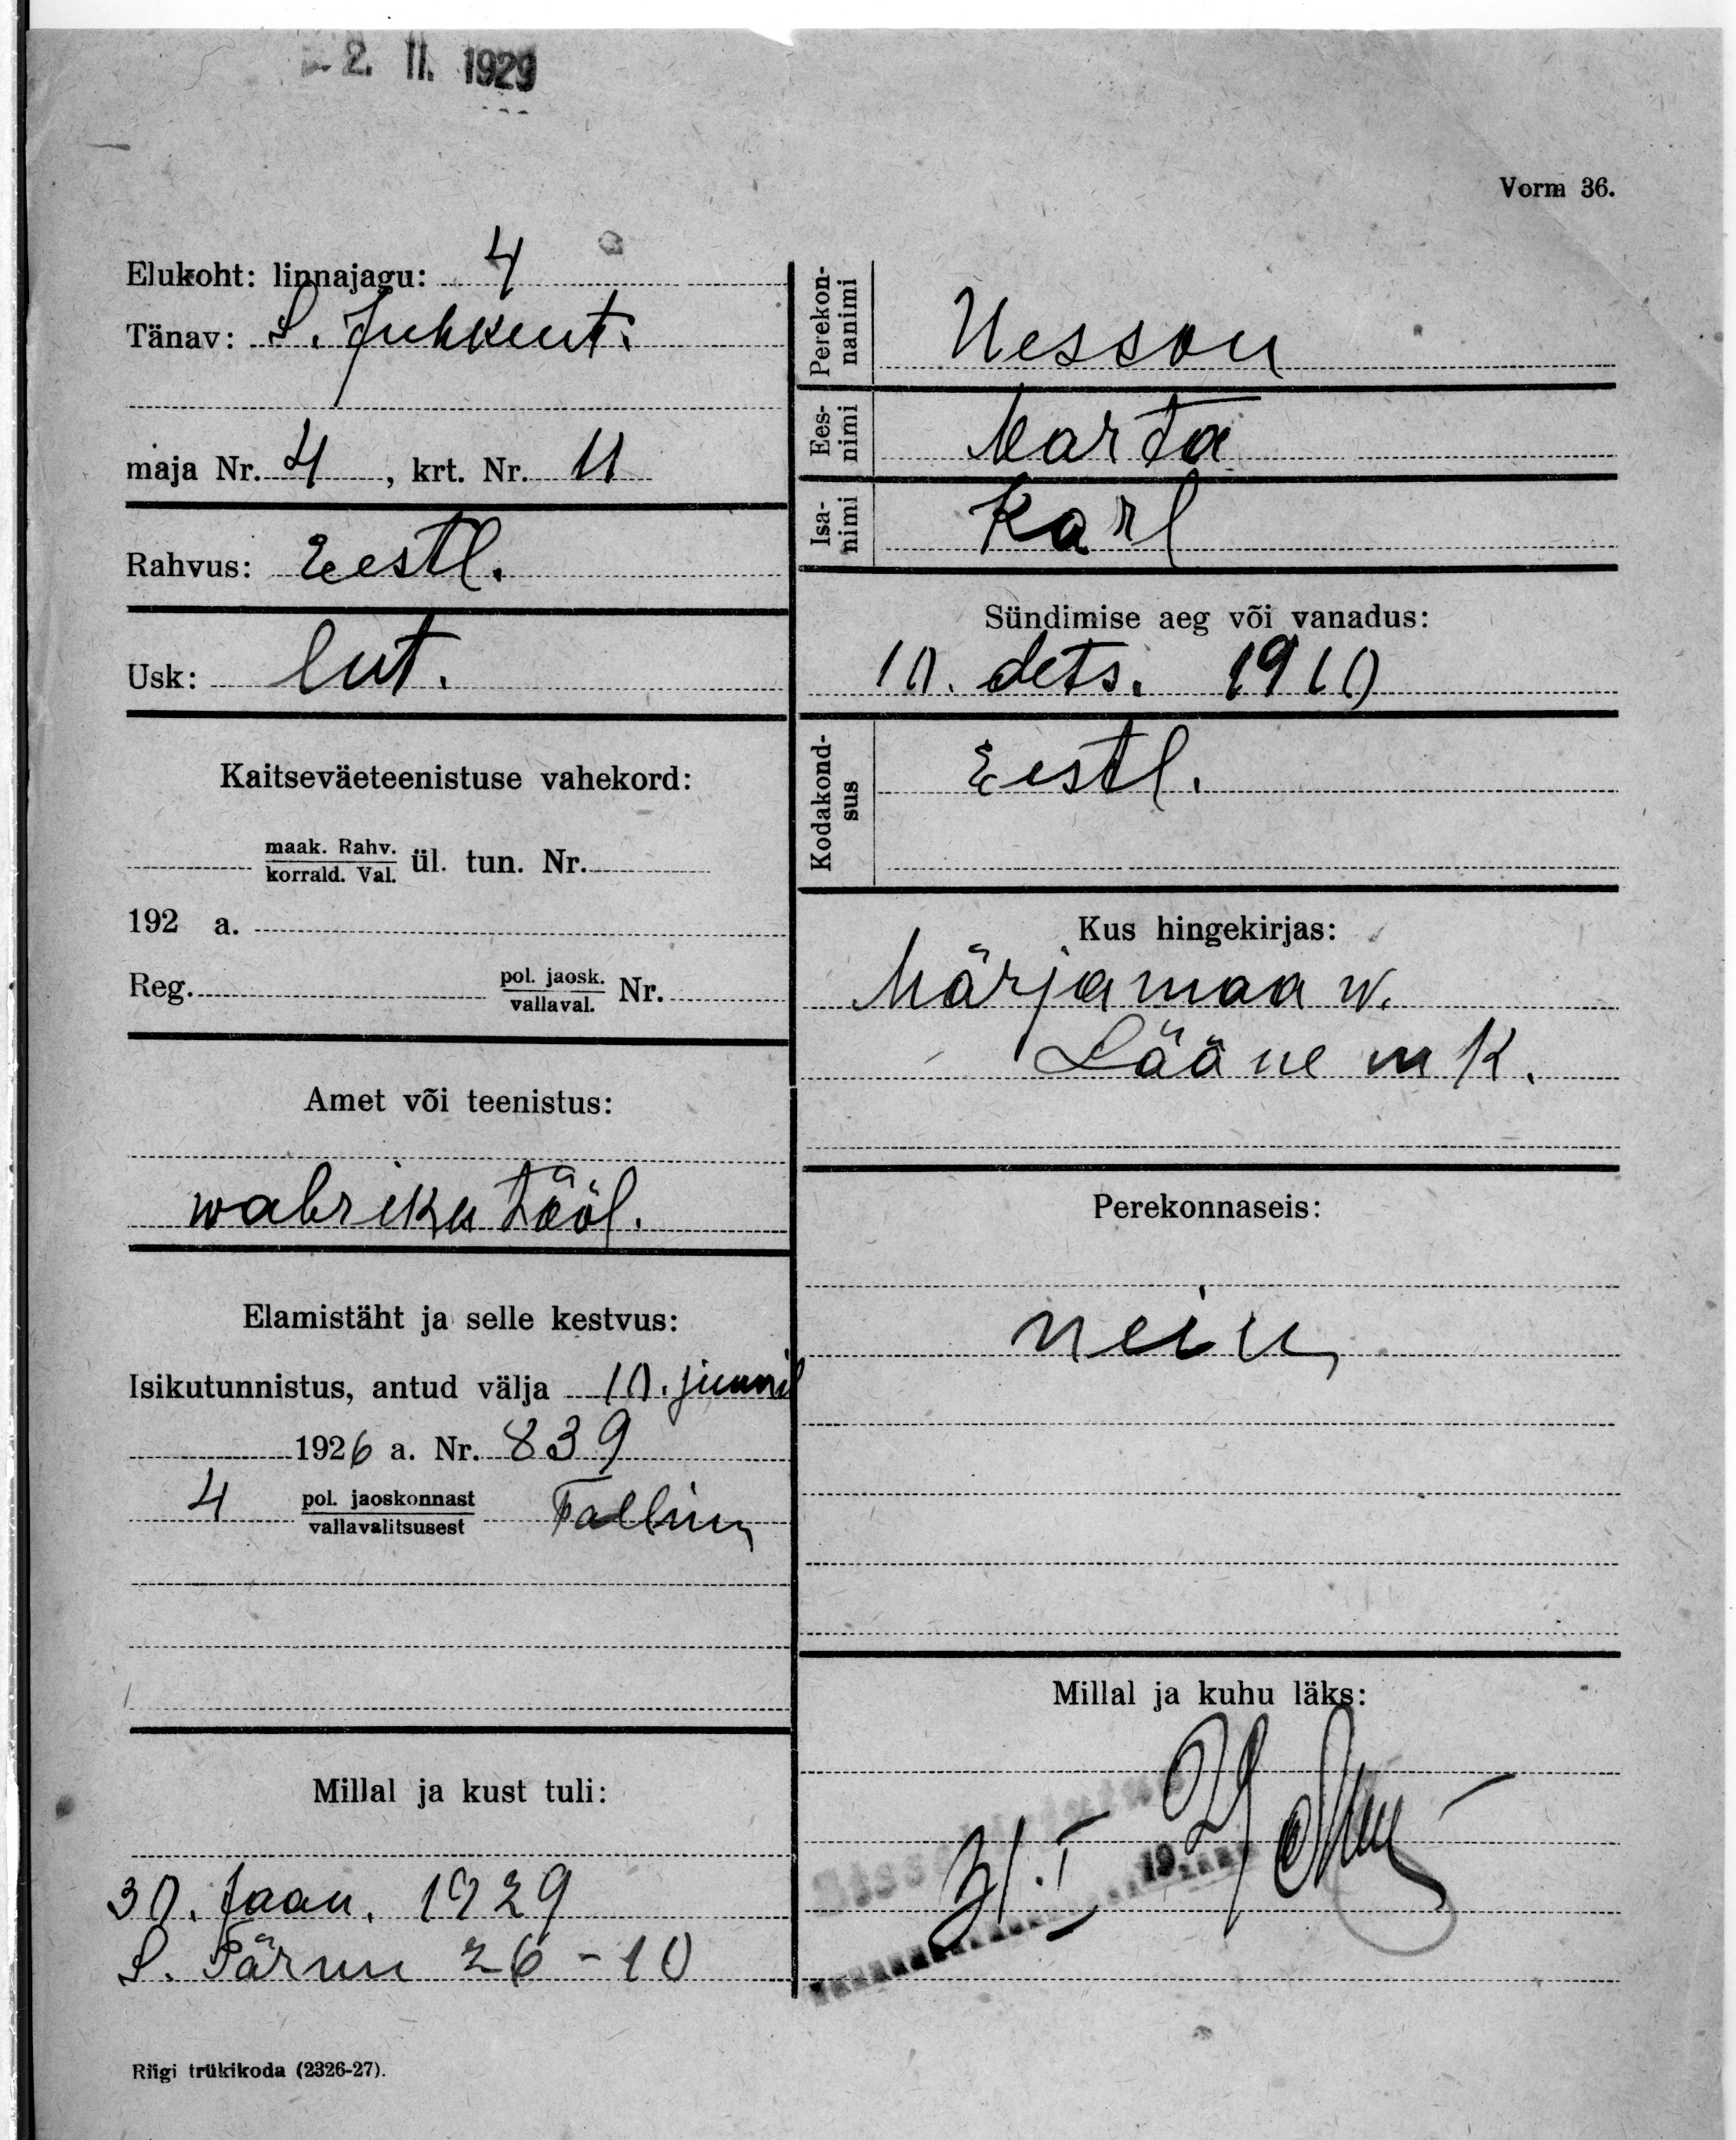 2. II. 1929
Vorm 36.
Elukoht: linnajagu: 4
Tänav: S. Juhkent.
maja Nr. 4, krt. Nr. 11
Rahvus: Eestl.
Usk: lut.
Kaitseväeteenistuse vahekord:
maak. Rahv.
korrald. Val. ül. tun. Nr.
192 a.
Reg. pol. jaosk.
vallaval. Nr.
Amet või teenistus:
wabriku tööl.
Elamistäht ja selle kestvus:
Isikutunnistus, antud välja 10. juunil
1926 a. Nr. 839
4 pol. jaoskonnast
vallavalitsusest Tallinn
Millal ja kust tuli:
30. Jaan. 1929
S. Pärnu 26-10
Riigi trükikoda (2326-27).
Perekon-
nanimi
Nesson
Ees-
nimi
Marta
Isa-
nimi
Karl
Sündimise aeg või vanadus:
10. dets. 1910
Kodakond-
sus
Eestl.
Kus hingekirjas:
Märjamaa w.
Lääne mk.
Perekonnaseis:
neiu
Millal ja kuhu läks:
31. I 1929